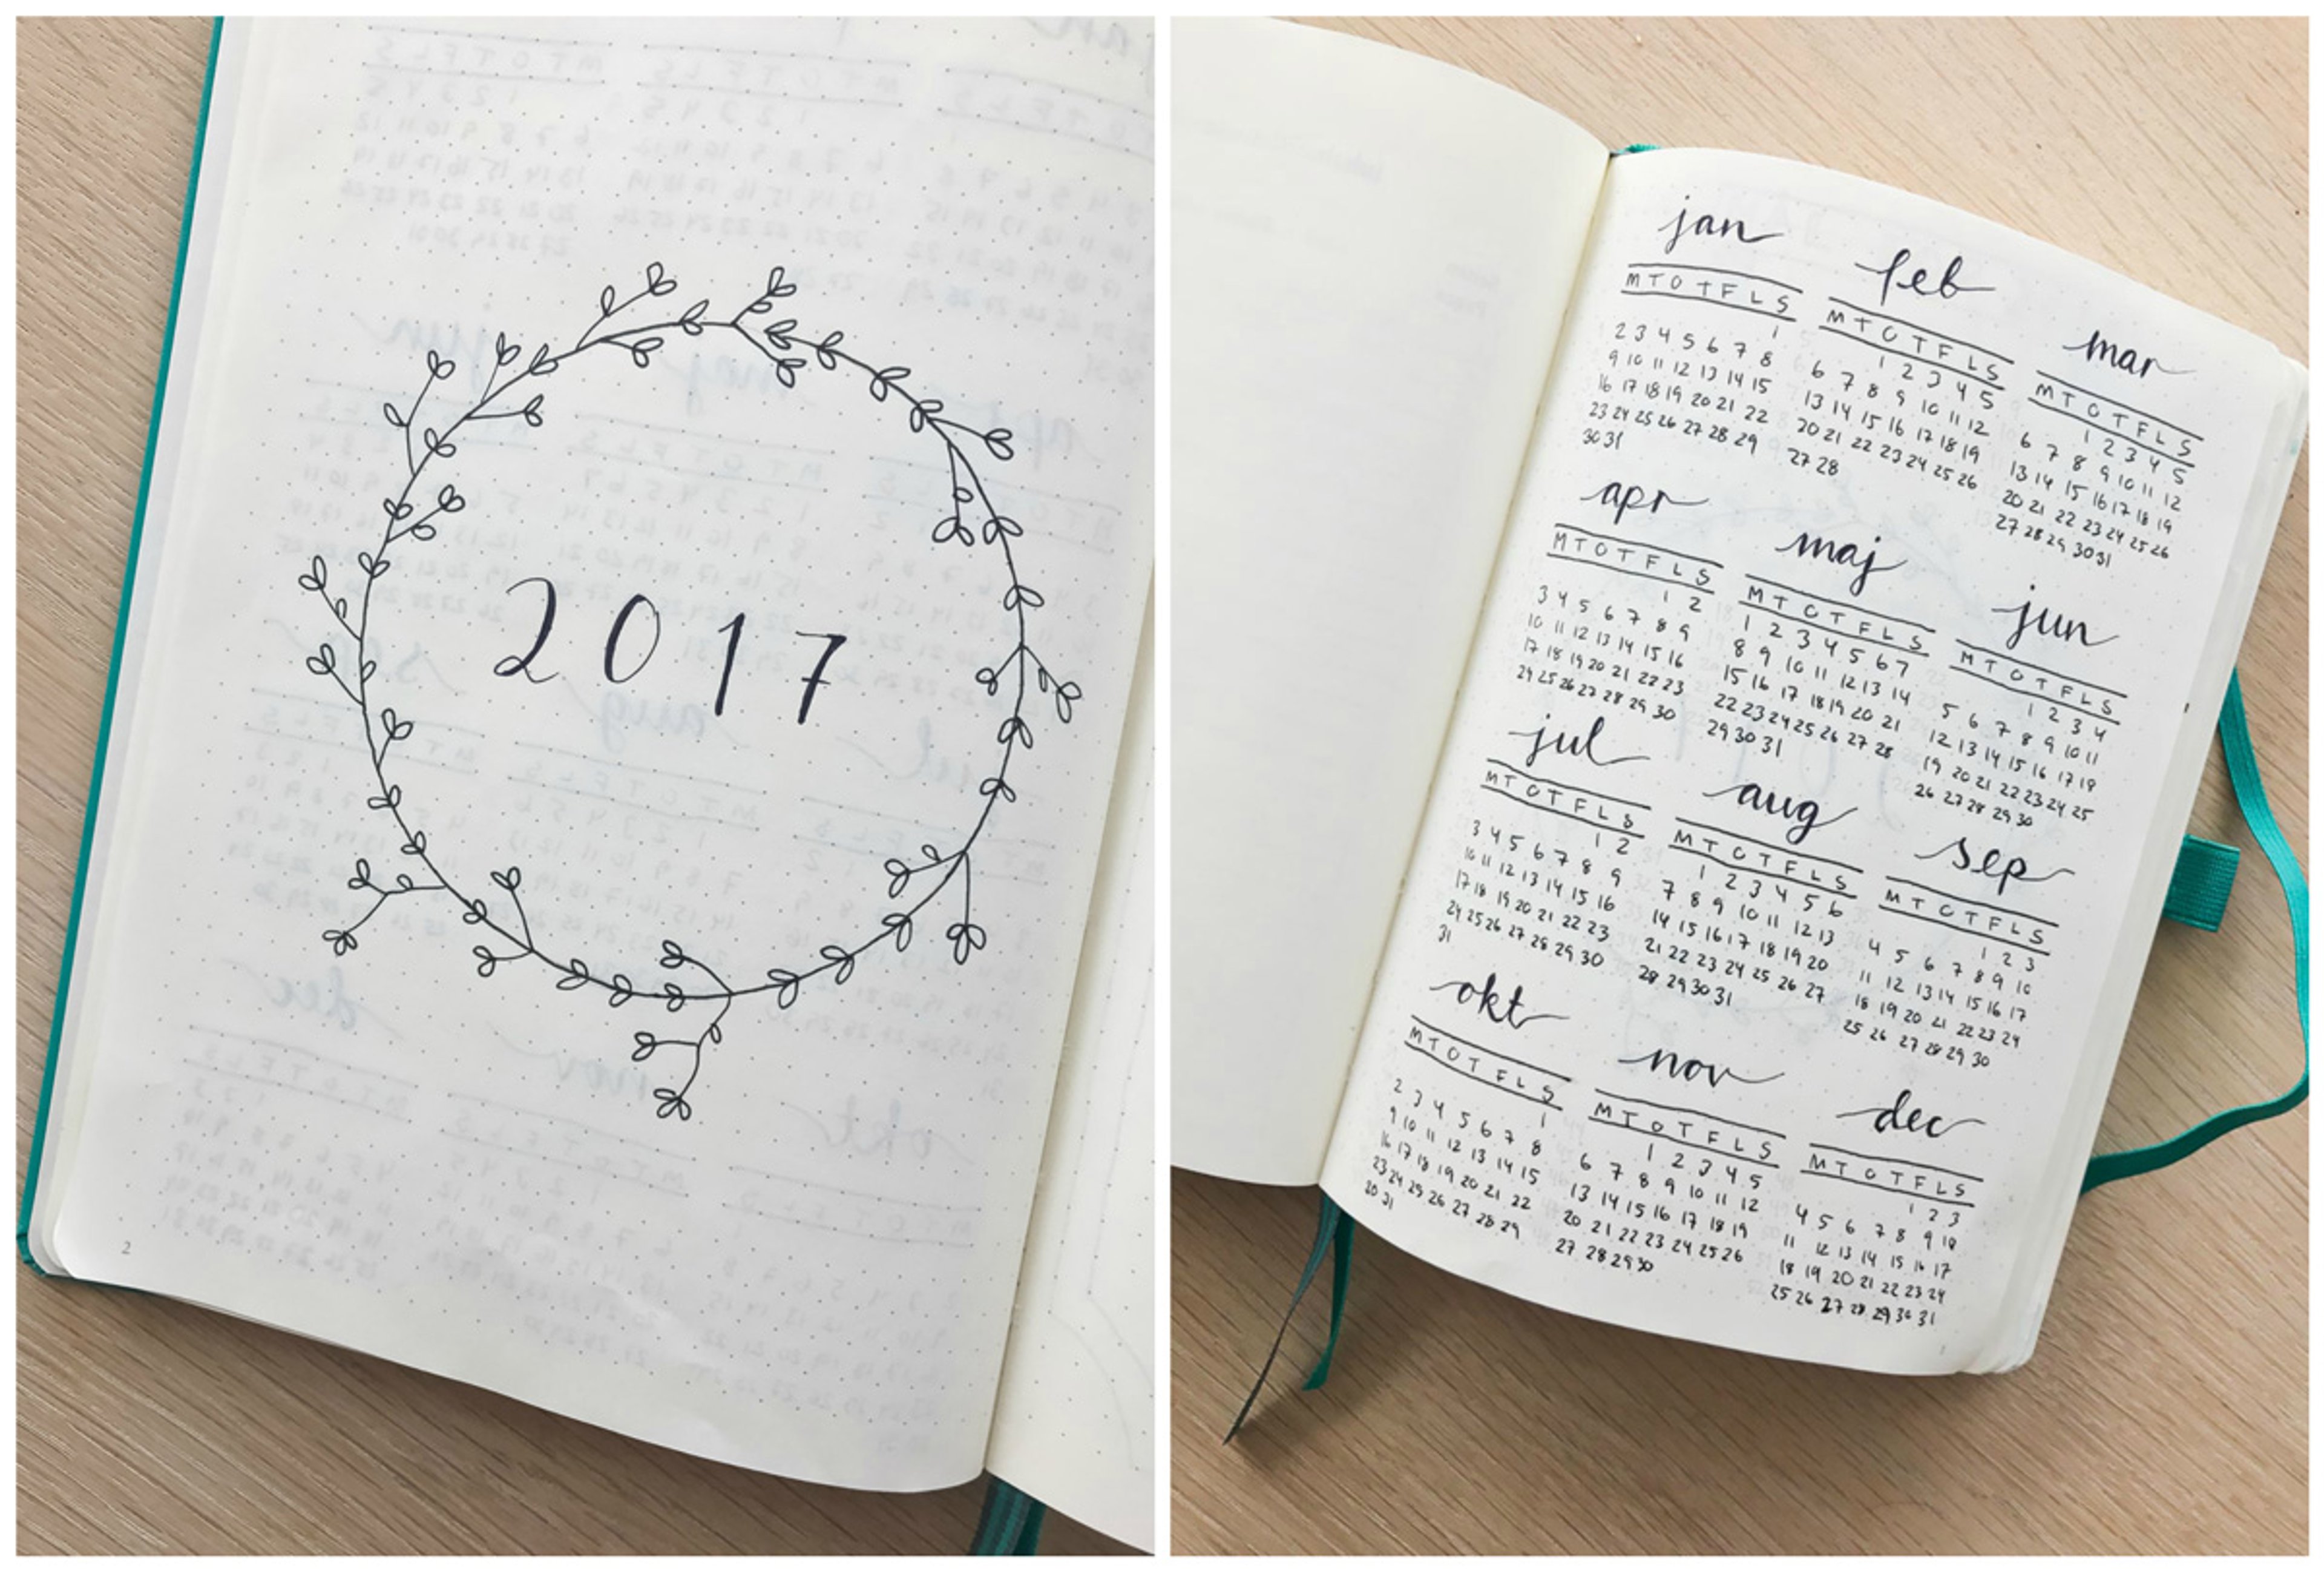 2017
2
jan
M T O T F L S
1
2 3 4 5 6 7 8
9 10 11 12 13 14 15
16 17 18 19 20 21 22
23 24 25 26 27 28 29
30 31
feb
M T O T F L S
1 2 3 4 5
6 7 8 9 10 11 12
13 14 15 16 17 18 19
20 21 22 23 24 25 26
27 28
mar
M T O T F L S
1 2 3 4 5
6 7 8 9 10 11 12
13 14 15 16 17 18 19
20 21 22 23 24 25 26
27 28 29 30 31
apr
M T O T F L S
1 2
3 4 5 6 7 8 9
10 11 12 13 14 15 16
17 18 19 20 21 22 23
24 25 26 27 28 29 30
maj
M T O T F L S
1 2 3 4 5 6 7
8 9 10 11 12 13 14
15 16 17 18 19 20 21
22 23 24 25 26 27 28
29 30 31
jun
M T O T F L S
1 2 3 4
5 6 7 8 9 10 11
12 13 14 15 16 17 18
19 20 21 22 23 24 25
26 27 28 29 30
jul
M T O T F L S
1 2
3 4 5 6 7 8 9
10 11 12 13 14 15 16
17 18 19 20 21 22 23
24 25 26 27 28 29 30
31
aug
M T O T F L S
1 2 3 4 5 6
7 8 9 10 11 12 13
14 15 16 17 18 19 20
21 22 23 24 25 26 27
28 29 30 31
sep
M T O T F L S
1 2 3
4 5 6 7 8 9 10
11 12 13 14 15 16 17
18 19 20 21 22 23 24
25 26 27 28 29 30
okt
M T O T F L S
1
2 3 4 5 6 7 8
9 10 11 12 13 14 15
16 17 18 19 20 21 22
23 24 25 26 27 28 29
30 31
nov
M T O T F L S
1 2 3 4 5
6 7 8 9 10 11 12
13 14 15 16 17 18 19
20 21 22 23 24 25 26
27 28 29 30
dec
M T O T F L S
1 2 3
4 5 6 7 8 9 10
11 12 13 14 15 16 17
18 19 20 21 22 23 24
25 26 27 28 29 30 31